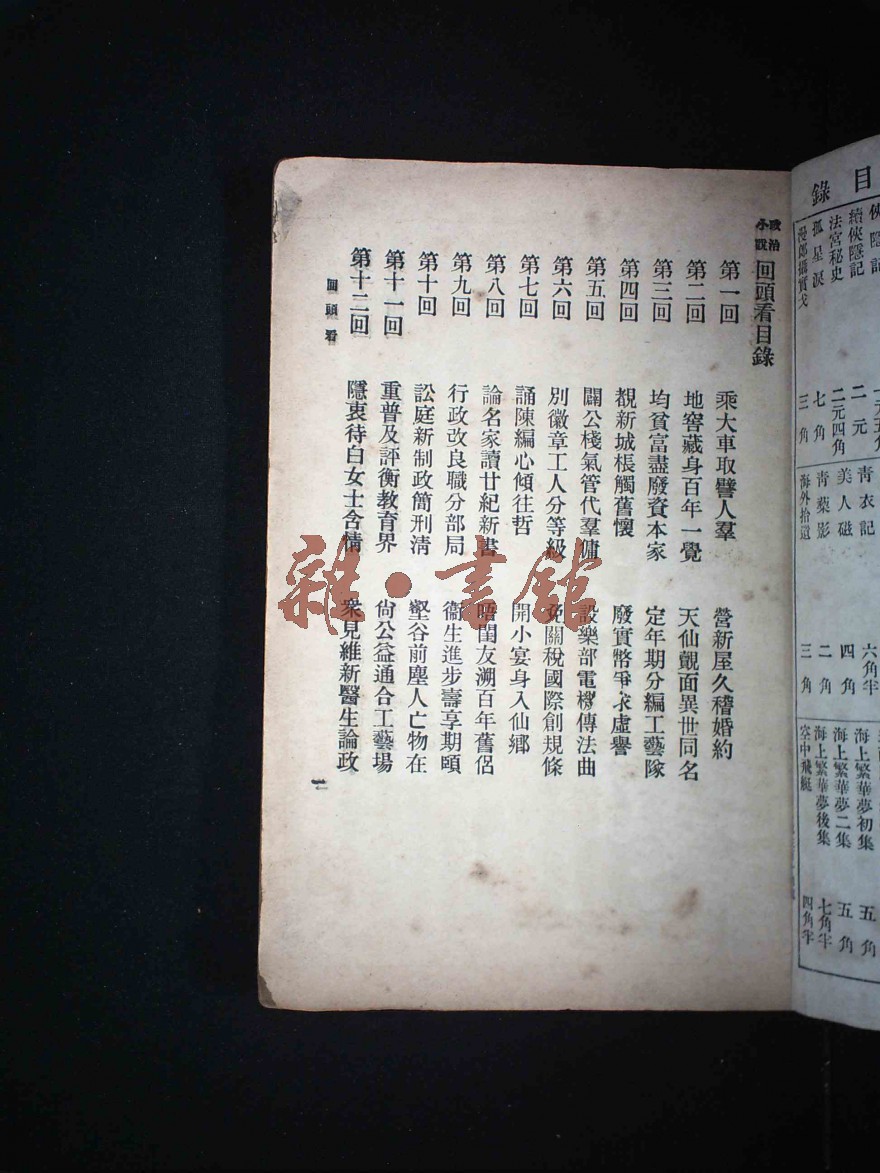 政治小說 回頭看目錄
第一回 乘大車取譬人羣 營新屋久稽婚約
第二回 地窖藏身百年一覺 天仙覿面異世同名
第三回 均貧富盡廢資本家 定年期分編工藝隊
第四回 覩新城棖觸舊懷 廢實幣爭求虛譽
第五回 闢公棧氣管代羣傭 設樂部電機傳法曲
第六回 別徽章工人分等級 免關稅國際創規條
第七回 誦陳編心傾往哲 開小宴身入仙鄉
第八回 論名家讀廿紀新書 晤閨友溯百年舊侶
第九回 行政改良職分部局 衞生進步壽享期頤
第十回 訟庭新制政簡刑淸 壑谷前塵人亡物在
第十一回 重普及評衡教育界 尙公益通合工藝場
第十二回 隱衷待白女士含情 衆見維新醫生論政
回頭看
一
目錄
俠隱記 一元五角
續俠隱記 二元
法宮秘史 二元四角
孤星淚 七角
漫郎攝實戈 三角
青衣記 六角半
美人磁 四角
青藜影 二角
海外拾遺 三角
海上繁華夢初集 五角
海上繁華夢二集 五角
海上繁華夢後集 七角半
空中飛艇 四角半
雜·書館